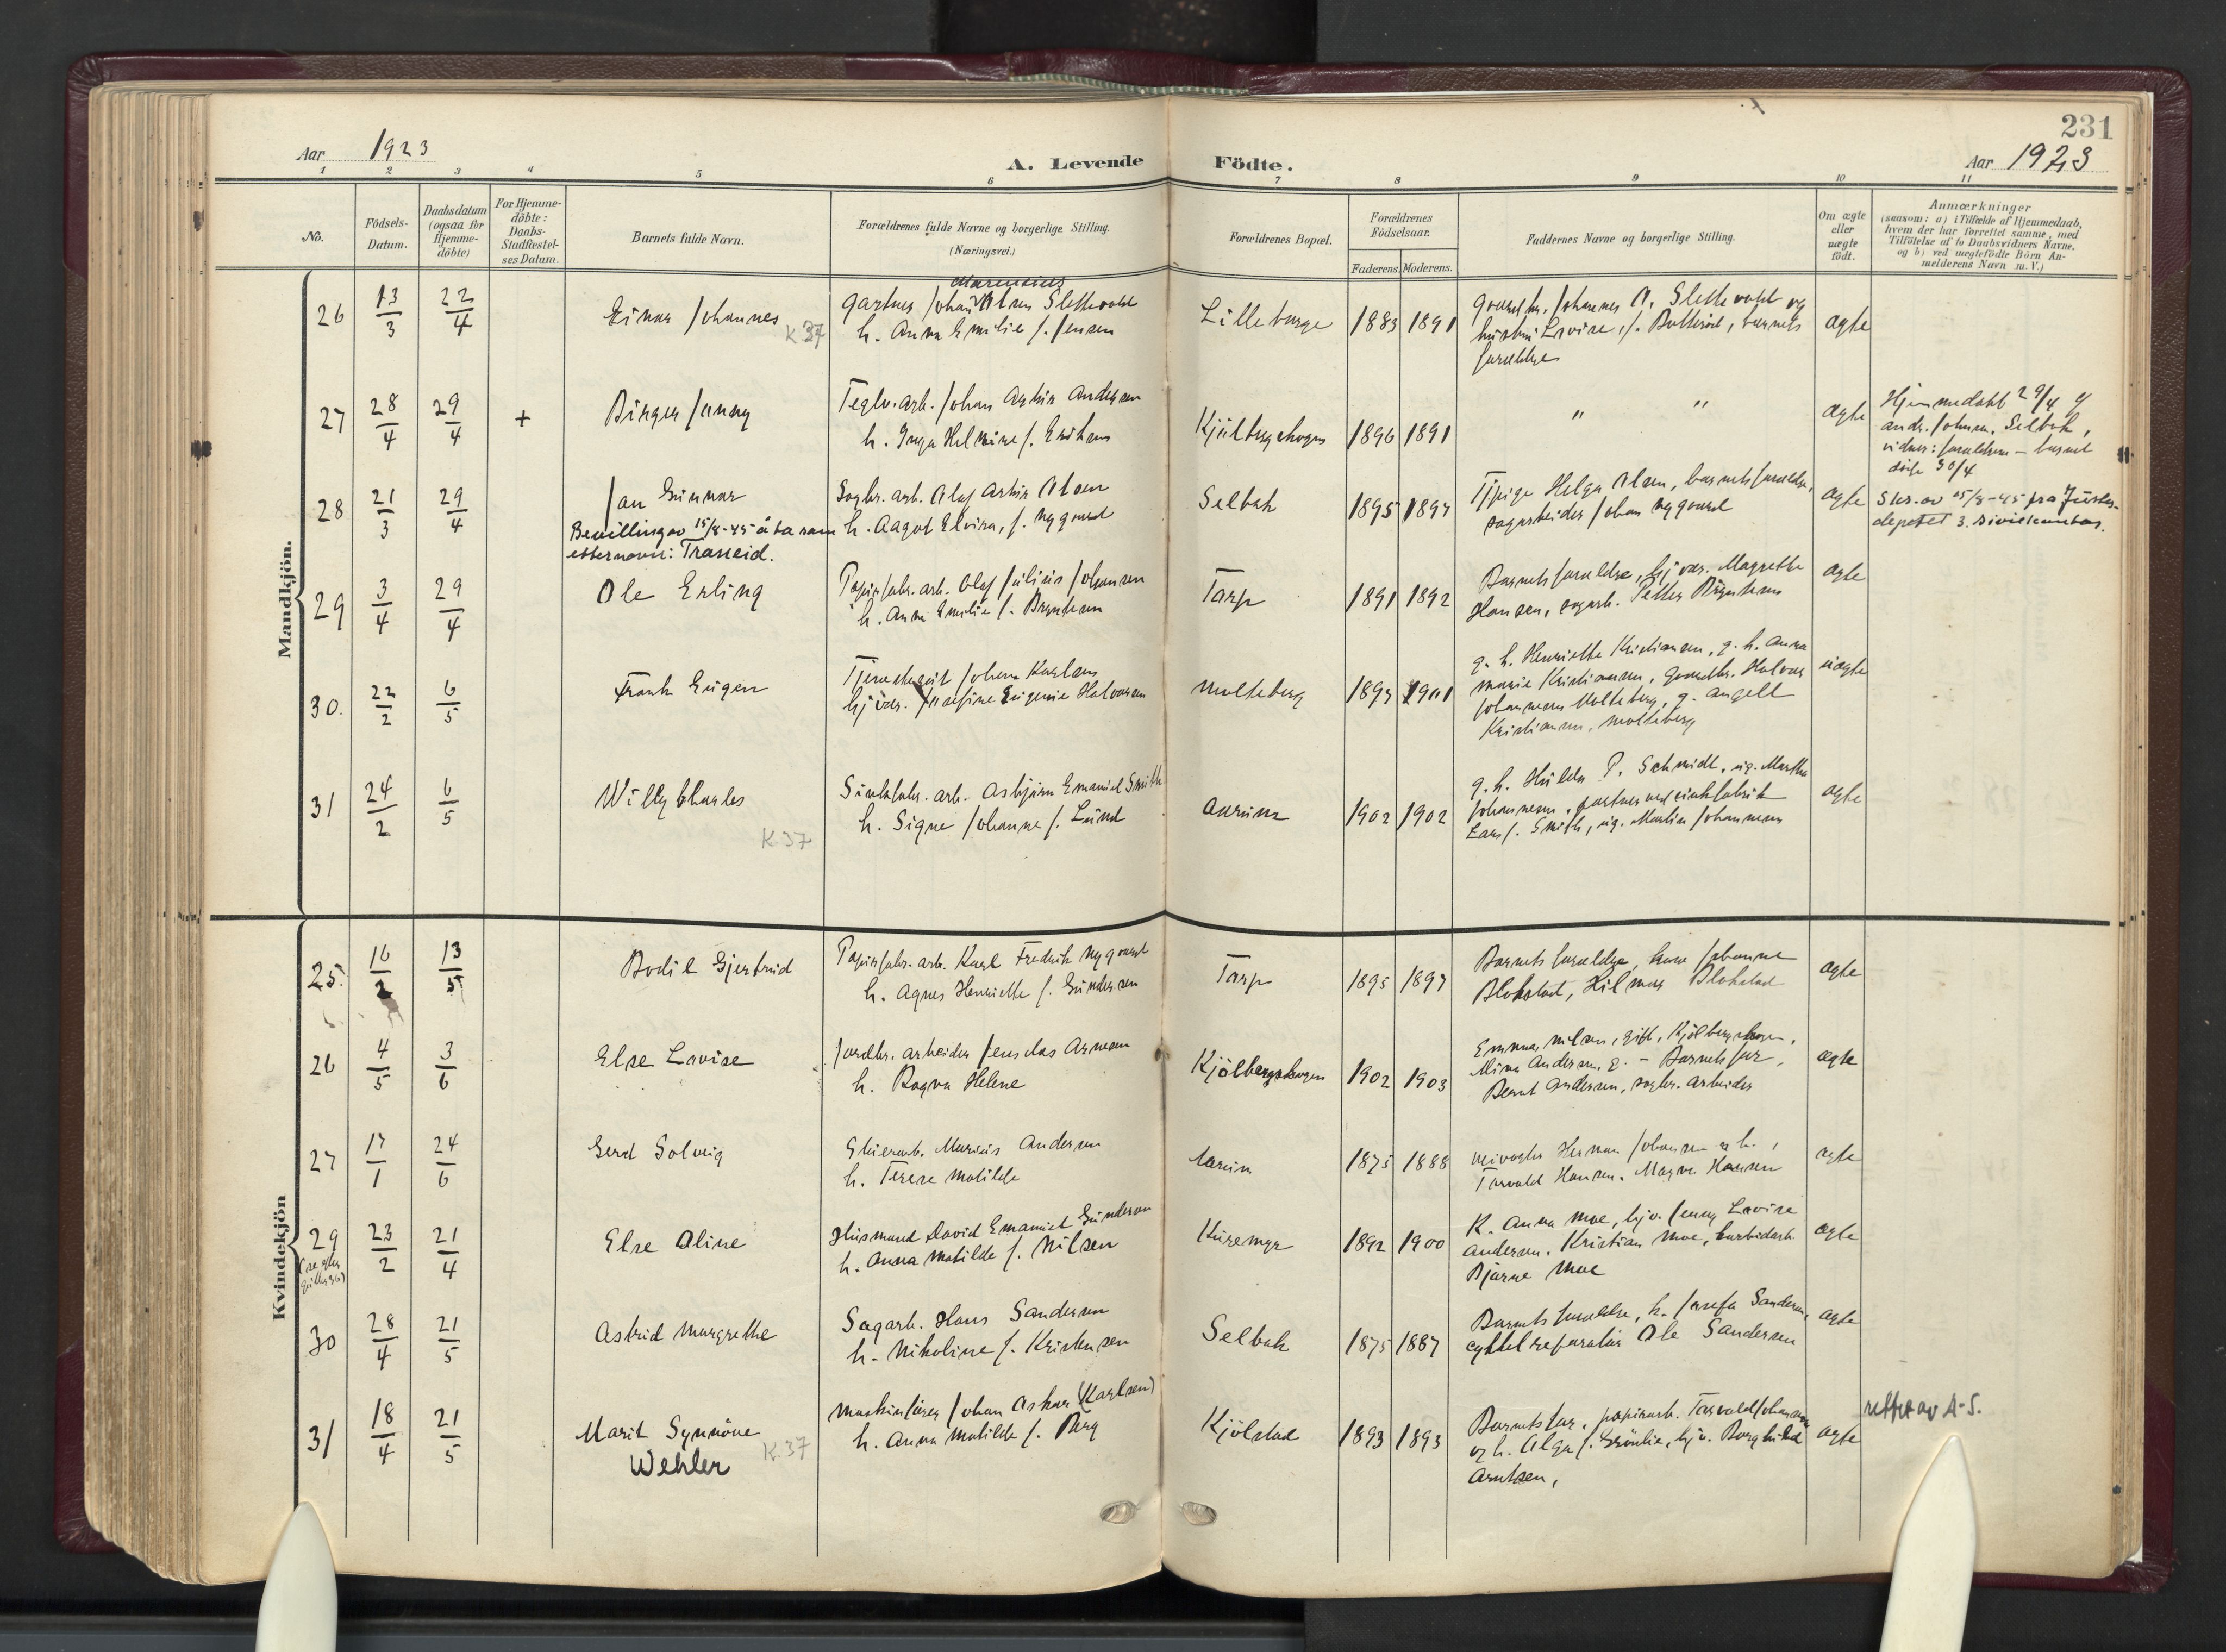 231
Aar 1923
A. Levende Födte.
Aar 1923
1 2 3 4 5 6 7 8 9 10 11
No.
Födsels-
Datum.
Daabsdatum
(ogsaa for
Hjemme-
döbte)
For Hjemme-
döbte:
Daabs-
Stadfæstel-
ses Datum.
Barnets fulde Navn.
Forældrenes fulde Navne og borgerlige Stilling.
(Næringsvei.)
Forældrenes Bopæl.
Forældrenes
Födselsaar.
Faderens. Moderens.
Faddernes Navne og borgerlige Stilling.
Om ægte
eller
uægte
födt.
Anmærkninger
(saasom: a) i Tilfælde af Hjemmedaab,
hvem der har forrettet samme, med
Tilföielse af to Daabsvidners Navne,
og b) ved uægtefödte Börn An-
melderens Navn m. V.)
Mandkjön.
26 13/3 22/4 Einar Johannes K 37
Marensius
Gartner Johan Olsen Slettevold
h. Anna Emilie f. Jensen
Lilleborge 1883 1891
Gaardbr. Johannes A. Slettevold og
hustru Lovise, f. barnets
forældre
ægte
27 28/4 29/4 + Birger Jenny
Teglv. arb. Johan Andersen
h. Inga Helmine f.
Kjölbergskogen 1896 1891
" "
ægte
Hjemmedöbt 29/4 af
andr. Johnsen, Selbak,
vidner: forældrene - barnet
döde 30/4
28 21/3 29/4 Jan Gunnar
Bevilling av 15/8-45 å ta som
etternavn: Traneid.
Sagbr. arb. Olaf Olsen
h. Aagot Elvira, f. Nygaard
Selbak 1895 1897
Tjpige Helga Olsen, barnets forældre,
sagarbeider Johan Nygaard
ægte
Skr. av 15/8-45 fra Justis-
depetet 3. sivilkontor.
29 3/4 29/4 Ole Erling
Papirfabr. arb. Olaf Julius Johansen
h. Anna Emilie f. Bryntesen
Torp 1891 1892
Barnets forældre, hj vær. Magrethe
Hansen, sagarb. Petter Bryntesen
ægte
30. 22/2 6/5 Frank Eugen
Tjenestegut Johan Karlsen
hjvær. Josefine Eugenie Halvorsen
Molteberg 1897 1901
g. h. Henriette Kristiansen, g. h. Anna
Marie Kristiansen, Gaardbr. Halvor
Johannesen Molteberg, g. Angell
Kristiansen, Molteberg
uægte
31 24/2 6/5 Willy Charles K. 37
Sinkfabr. arb. Asbjörn Emanuel Smith
h. Signe Johanne f. Lund
1902 1902
g. h. Hulda P. Schmidt, ug. Martha
Johannesen, portner ved sinkfabrik
Lars J. Smith, ug. Martin Johannesen
ægte
Kvindekjön
25. 16/2 13/5 Bodil Gjertrud
Papirfabr. arb. Karl Fredrik Nygaard
h. Agnes Henriette f. Gundersen
Torp 1895 1897
Barnets forældre, Johanne
Blokstad, Hilmar Blokstad
ægte
26 4/5 3/6 Else Lovise
Jordbr. arbeider Jens
h. Ragna Helene
Kjölbergskogen 1902 1903
Emma Nilsen, gift, Kjölbergskogen,
Mina Andersen, g. - Barnets far,
Bernt Andersen, sagbr. arbeider
ægte
27 17/1 24/6 Gerd Solveig
Marius Andersen
h. Terese Matilde
1875 1888
veivogter Herman Johansen og h.,
Torvald Hansen. Magna Hansen
ægte
29 23/2 21/4 Else Oline
Husmand David Emanuel Gundersen
h. Anna Matilde f. Nilsen
Kuremyr 1892 1900
K. Anna Moe, hjv. Jenny Lovise
Andersen. Kristian Moe, karbidarb.
Bjarne Moe
ægte
30 28/4 21/5 Astrid Margrethe
Sagarb. Hans Sandersen
h. Nikoline f. Kristensen
Selbak 1875 1887
Barnets forældre, h. Josefa Sandersen,
cykkelreparatör Ole Sandersen
ægte
31 18/4 21/5 Marit Synnöve
Wehler K. 37
Maskinförer Johan Oskar (Karlsen)
h. Anna Matilde f. Berg
Kjölstad 1893 1893
Barnets far, papirarb. Torvald Johansen
og h. Olga f. Grönlie, hjv. Borghild
Arntsen,
ægte
rettet av A-S.